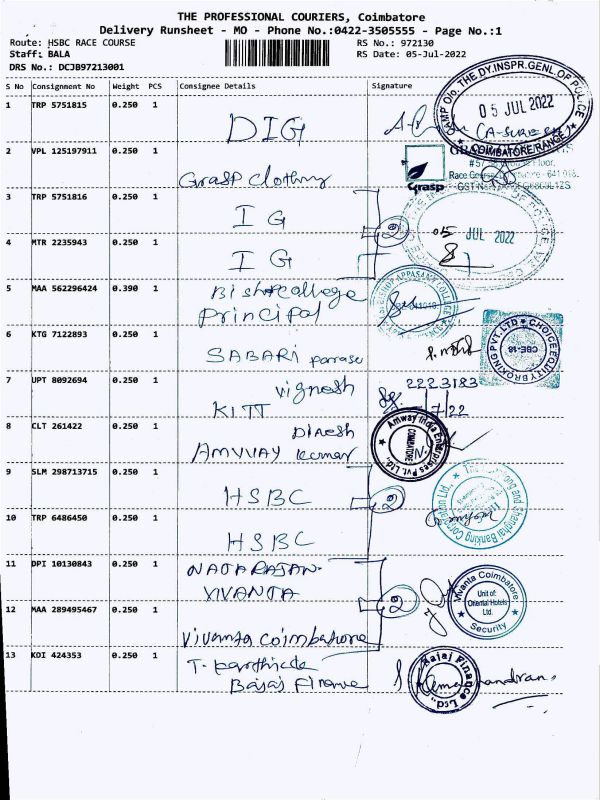 THE PROFESSIONAL COURIERS, Coimbatore
Delivery Runsheet - MO - Phone No.:0422-3505555 - Page No.:1
Route: HSBC RACE COURSE
RS No.: 972130
Staff: BALA
RS Date: 05-Jul-2022
DRS No.: DCJB97213001
S No Consignment No Weight PCS Consignee Details Signature
1 TRP 5751815 0.250 1
DIG
CAMP O/o. THE DY.INSPR.GENL.OF POLICE
05 JUL 2022
COIMBATORE RANGE
2 VPL 125197911 0.250 1
Grasp Clothing
Grasp
3 TRP 5751816 0.250 1
IG
2
05 JUL 2022
4 MTR 2235943 0.250 1
IG
5 MAA 562296424 0.390 1
Bishop college
Principal
BISHOP APPASAMY COLLEGE
6 KTG 7122893 0.250 1
SABARI
CHOICE EQUITY BROKING PVT. LTD
CBE-18
7 UPT 8092694 0.250 1
Vignesh
2223183
KITT
/7/22
8 CLT 261422 0.250 1
Dinesh
AMWAY Kumar
Amway India Enterprises Pvt. Ltd.
COIMBATORE
9 SLM 298713715 0.250 1
HSBC
2
The Hongkong and Shanghai Banking Corporation Ltd
10 TRP 6486450 0.250 1
HSBC
11 DPI 10130843 0.250 1
NATARAJAN
VIVANTA
2
Vivanta Coimbatore
Unit of:
Oriental Hotels
Ltd.
Security
12 MAA 289495467 0.250 1
Vivanta Coimbatore
13 KOI 424353 0.250 1
T. Karthick
Bajaj Finance
Bajaj Finance Ltd.,